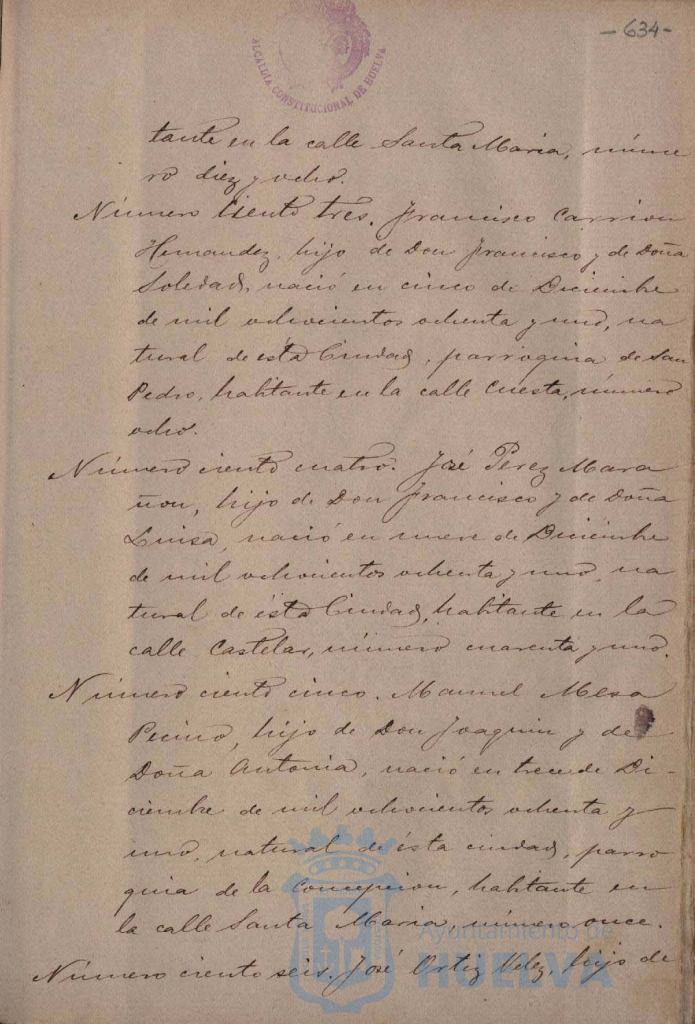 - 634 -
ALCALDÍA CONSTITUCIONAL DE HUELVA
tante en la calle Santa Maria, núme
ro diez y ocho.
Número Ciento tres. Francisco Carrion
Hernandez, hijo de Don Francisco y de Doña
Soledad, nació en cinco de Diciembre
de mil ochocientos ochenta y uno, na
tural de ésta Ciudad, parroquia de San
Pedro, habitante en la calle Cuesta, número
ocho.
Número ciento cuatro. José Perez Mara
ñon, hijo de Don Francisco y de Doña
Luisa, nació en nueve de Diciembre
de mil ochocientos ochenta y uno, na
tural de ésta Ciudad, habitante en la
calle Castelar, número cuarenta y uno.
Número ciento cinco. Manuel Mesa
Pecino, hijo de Don Joaquin y de
Doña Antonia, nació en trece de Di-
ciembre de mil ochocientos ochenta y
uno, natural de ésta ciudad, parro
quia de la Concepcion, habitante en
la calle Santa Maria, número once.
Número ciento seis. José Ortiz Velez, hijo de
Ayuntamiento de
HUELVA